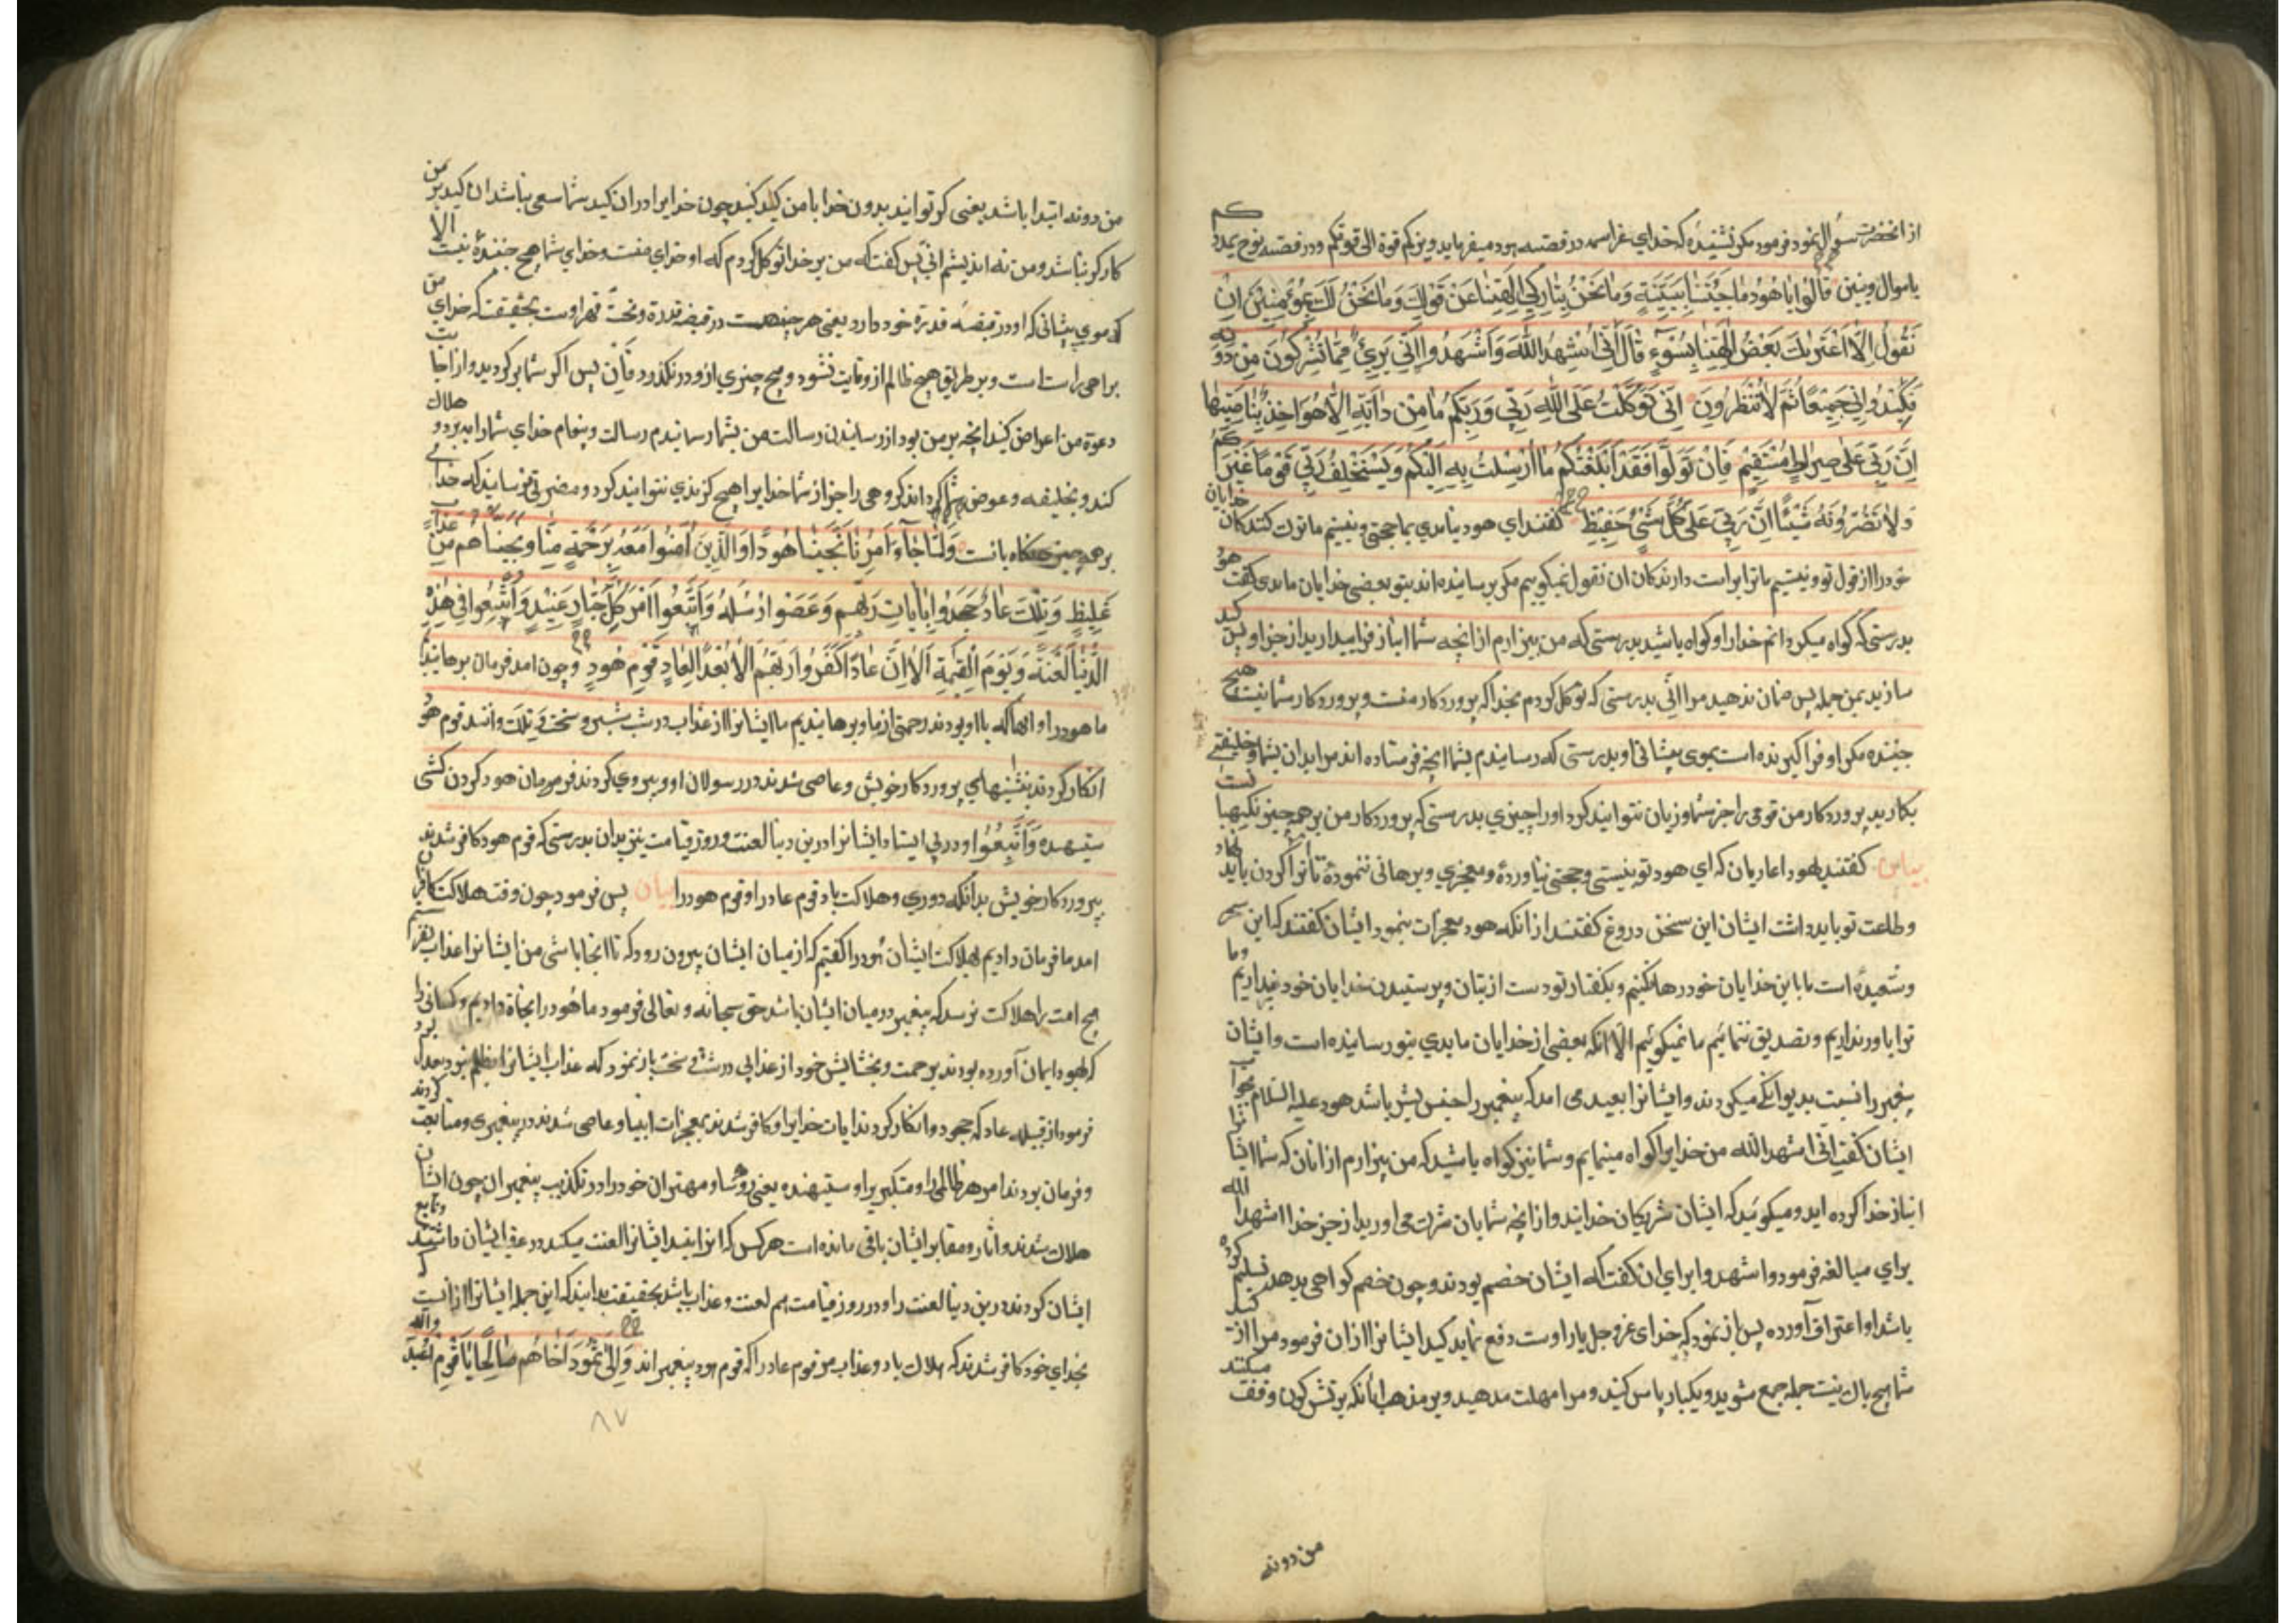 از انحضرت سؤال نمود فرمود مکر نشنیده که خدای عز اسمه در قصه هود میفرماید ویزدکم قوة الی قوتکم ودر قصه نوح یمدد کم
باموال وبنین قَالُوا یَا هُودُ مَا جِئْتَنَا بِبَیِّنَةٍ وَمَا نَحْنُ بِتَارِکِی اٰلِهَتِنَا عَنْ قَوْلِکَ وَمَا نَحْنُ لَکَ بِمُؤْمِنِینَ اِنْ
نَقُولُ اِلَّا اعْتَرٰیکَ بَعْضُ اٰلِهَتِنَا بِسُوٓءٍ قَالَ اِنِّی اُشْهِدُ اللّٰهَ وَاشْهَدُوا اَنِّی بَرِیٌٔ مِمَّا تُشْرِکُونَ مِنْ دُونِهِ
فَکِیدُونِی جَمِیعًا ثُمَّ لَا تُنْظِرُونَ اِنِّی تَوَکَّلْتُ عَلَی اللّٰهِ رَبِّی وَرَبِّکُمْ مَا مِنْ دَابَّةٍ اِلَّا هُوَ اٰخِذٌ بِنَاصِیَتِهَا
اِنَّ رَبِّی عَلٰی صِرَاطٍ مُسْتَقِیمٍ فَاِنْ تَوَلَّوْا فَقَدْ اَبْلَغْتُکُمْ مَا اُرْسِلْتُ بِهِ اِلَیْکُمْ وَیَسْتَخْلِفُ رَبِّی قَوْمًا غَیْرَکُمْ
وَلَا تَضُرُّونَهُ شَیْئًا اِنَّ رَبِّی عَلٰی کُلِّ شَیْءٍ حَفِیظٌ کفتند ای هود نیامدی بما بحجتی ونیستیم ما ترک کنندکان خدایان
خود را از قول تو ونیستیم ما ترا براست دارندکان ان نقول نمیکوییم مکر برسانیده اند بتو بعضی خدایان ما بدی کفت هو
بدرستی که کواه میکردانم خدا را وکواه باشید بدرستی که من بیزارم از انچه شما انباز فرا میدارید از جز او پس کید
سازید بمن جمله پس ضمان ندهید مرا انّی بدرستی که توکل کردم بخدا که پروردکار منست وپروردکار شما نیست هیچ
جنبنده مکر او فرا کیرنده است بموی پیشانی او بدرستی که رسانیدم بشما انچه فرستاده اند مرا بدان بشما وخلیفتی
بکار بد پروردکار من قومی را جز شما وزیان نتوانید کرد او را چیزی بدرستی که پروردکار من بر همه چیز نکهبا نست
بیان کفتند بهود عادیان که ای هود تو بینتی وحجتی نیاوردهٔ ومعجزی وبرهانی ننمودهٔ تا ترا کردن باید نهاد
وطاعت تو باید داشت ایشان این سخن دروغ کفتند از انکه هود معجزات بنمود ایشان کفتند که این سحر
وشعبده است ما با این خدایان خود رها نکنیم وبکفتار تو دست از بتان وپرستیدن خدایان خود نمیداریم وما
ترا باور نداریم وتصدیق ننمائیم ما نمیکوئیم الّا انکه بعضی از خدایان ما بدی بتو رسانیده است وایشان
پیغمبر را نسبت بدیوانکی میکردند وایشانرا بعید می امد که پیغمبر را جنس بشر باشد هود علیه السلام بجواب
ایشان کفت انّی اشهد الله من خدایرا کواه مینمایم وشما نیز کواه باشید که من بیزارم از انان که شما ایشا نرا
انباز خدا کرده اید ومیکوئید که ایشان شریکان خدایند واز انچه شما بان شرک می اورید از جز خدا اشهد الله
برای مبالغه فرمود واشهدوا برای ان کفت که ایشان خصم بودند وچون خصم کواهی بدهد تسلیم کرده
باشد واعتراف آورده پس باز نمود که خدای عز وجل یار اوست دفع نماید کید ایشانرا از ان فرمود مرا از کید
شما هیچ باک نیست جمله جمع شوید ویکبار باس کنید ومرا مهلت مدهید وبر مذهب انکه برتشرکون وقف
من دونه
من دونه ابتدا باشد یعنی کر توانید بدون خدا با من کید کنید چون خدایرا در ان کید شما سعی نباشد ان کید بر من
کارکر نباشد ومن نه اندیشم انی پس کفت که من بر خدا توکل کردم که او خدای منست وخدای شما هیچ جنبندهٔ نیست الا
که موی پیشانی که او در قبضه قدرة خود دارد یعنی هر چیز هست در قبضه قدرة وتحت قهر اوست بحقیقت که خدای من
براهی راست است وبر طریق هیچ ظالم ازو فایت نشود وهیچ چیزی ازو در نکذرد فان پس اکر شما بر کردید واز اجابت
دعوة من اعراض کنید انچه بر من بود از رسانیدن رسالت من بشما رسانیدم رسالت وپیغام خدای شما را ببرد وهلاک
کند وبخلیفه وعوض شما کرداند کروهی را جز از شما خدایرا هیچ کزندی نتوانید کرد ومضرتی نرسانید که خدای
بر همه چیز نکاهبانست وَلَمَّا جَآءَ اَمْرُنَا نَجَّیْنَا هُودًا وَالَّذِینَ اٰمَنُوا مَعَهُ بِرَحْمَةٍ مِنَّا وَنَجَّیْنَاهُمْ مِنْ عَذَابٍ
غَلِیظٍ وَتِلْکَ عَادٌ جَحَدُوا بِاٰیَاتِ رَبِّهِمْ وَعَصَوْا رُسُلَهُ وَاتَّبَعُوا اَمْرَ کُلِّ جَبَّارٍ عَنِیدٍ وَاُتْبِعُوا فِی هٰذِهِ
الدُّنْیَا لَعْنَةً وَیَوْمَ الْقِیٰمَةِ اَلَا اِنَّ عَادًا کَفَرُوا رَبَّهُمْ اَلَا بُعْدًا لِعَادٍ قَوْمِ هُودٍ وچون امد فرمان برهانیدیم
ما هود را وانها که با او بودند برحمتی از ما وبرهانیدیم ما ایشانرا از عذاب درشت سخت وَتِلْکَ وانند قوم هود
انکار کردند بنشینهای پروردکار خویش وعاصی شدند در رسولان او وپیروی کردند فرمودن هر کردن کشی
ستیهنده وَاُتْبِعُوا ودر پی ایستاد ایشانرا درین دنیا لعنت وروز قیامت نیز بدان بدرستی که قوم هود کافر شدند
بپروردکار خویش بدانکه دوری وهلاکت باد قوم عاد را وقوم هود را بیان پس فرمود چون وقت هلاکت کافران
امد ما فرمان دادیم بهلاکت ایشان هود را کفتیم که از میان ایشان بیرون رو که تا انجا باشی من ایشانرا عذاب نفرستم
هیچ امت را هلاکت نرسد که پیغمبر در میان ایشان باشد حق سبحانه وتعالی فرمود ما هود را نجاة دادیم وکسانی را
که بهود ایمان آورده بودند برحمت وبخشایش خود از عذابی درشت وسخت باز نمود که عذاب ایشانرا بظلم نبود بعدل بود
فرمود از قبیله عاد که جحود وانکار کردند ایات خدایرا وکافر شدند بمعجزات انبیا وعاصی شدند در پیغمبری ومتابعت کردند
وفرمان بردند امر هر ظالمی را ومتکبری را وستیهنده یعنی رؤسا ومهتران خود را در تکذیب پیغمبران چون ایشان
هلاک شدند واثار ومقابر ایشان باقی مانده است هر کس که انرا بیند ایشانرا لعنت میکند در عقب ایشان داشتند وتابع
ایشان کردند درین دنیا لعنت را ودر روز قیامت هم لعنت وعذاب باشد بحقیقت بدانید که این جمله ایشانرا از انست که
بخدای خود کافر شدند که هلاک باد وعذاب مر قوم عاد را که قوم هود پیغمبر اند وَاِلٰی ثَمُودَ اَخَاهُمْ صَالِحًا یَا قَوْمِ اعْبُدُ والله
٨٧